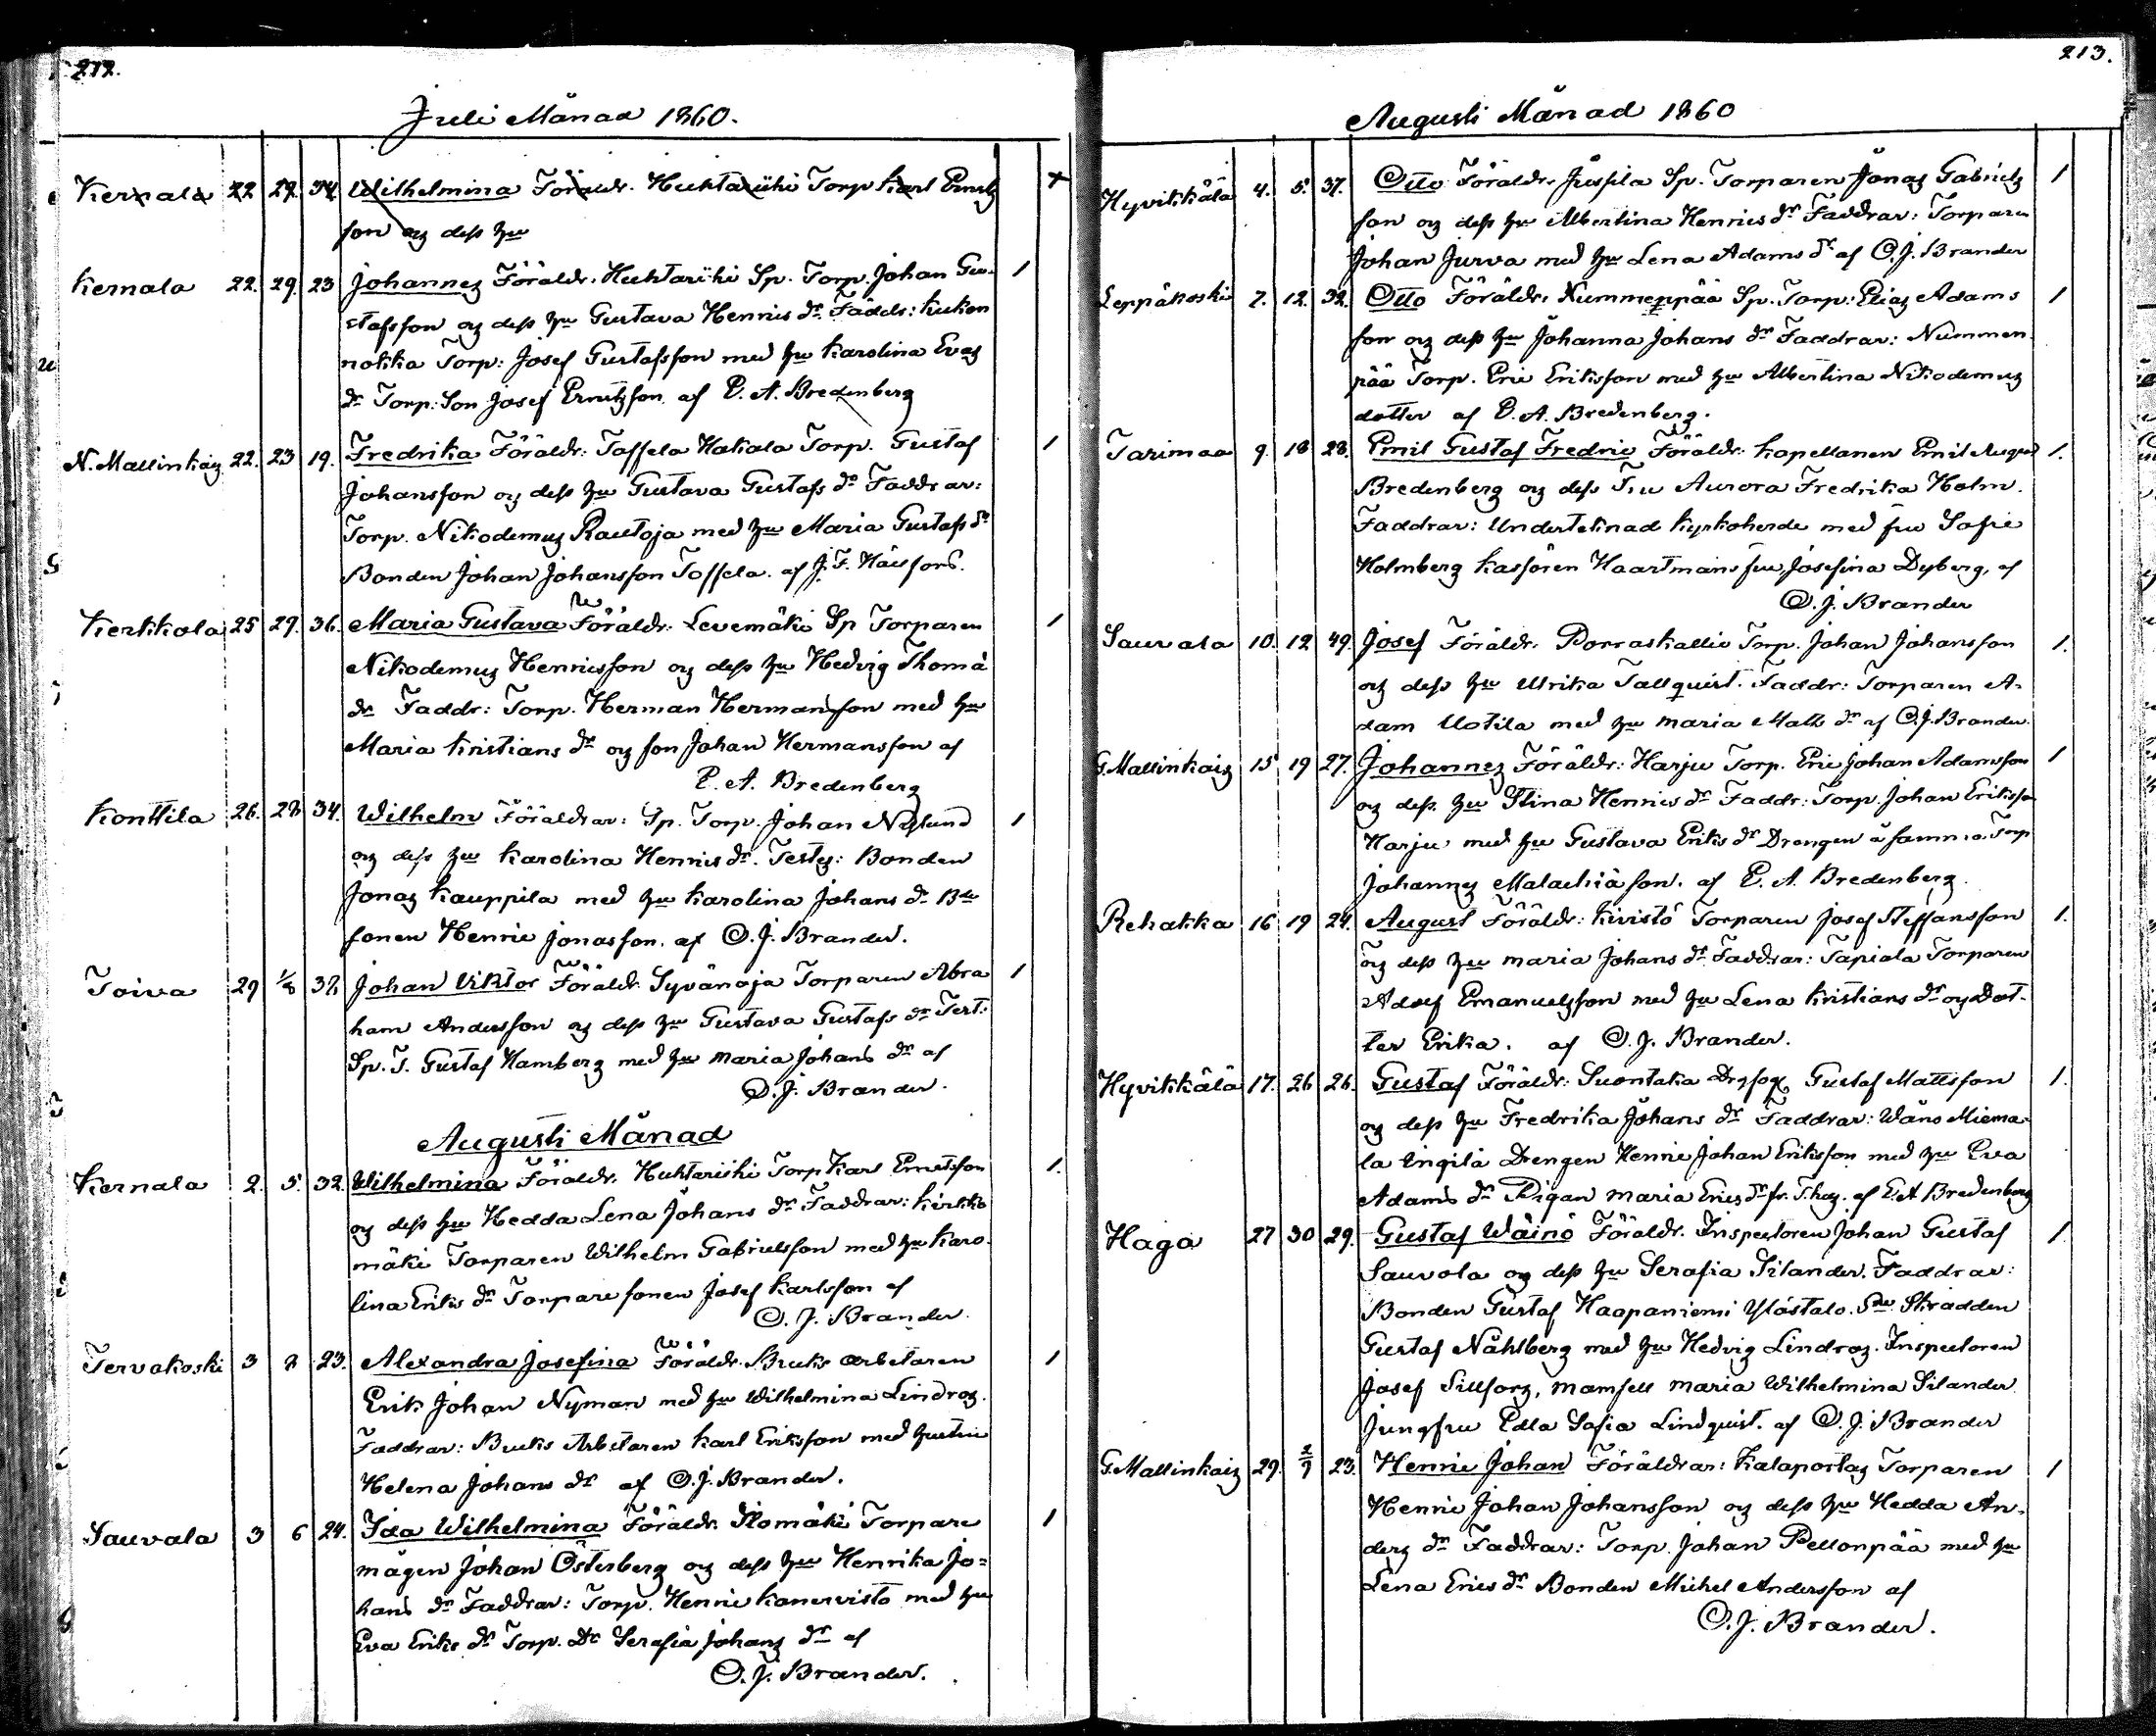 212.
Juli Månad 1860.
Kernala 22 29. 34. Wilhelmina Föräldr. Huhtariihi Torp Karl Ernst
son og dess hu
Kernala 22. 29. 23 Johannes Föräldr. Huhtariihi Sp. Torp. Johan Gu- 1
stafsson og dess hu Gustava Henrics dr Faddr: Kukon
nokka Torp: Josef Gustafsson med hu Karolina Evas
dr Torp: Son Josef Ernstsson af E. A. Bredenberg
N. Mallinkais 22. 23 19. Fredrika Föräldr: Toffela Hakala Torp. Gustaf 1
Johansson og dess hu Gustava Gustafs dr Faddrar:
Torp. Nikodemus Rautoja med hu Maria Gustafs dr
Bonden Johan Johansson Toffela. af J. F.
Kerkkola 25 29. 36. Maria Gustava Föräldr. Levemäki Sp Torparen 1
Nikodemus Henricsson og dess hu Hedvig Thomä
dr Faddr: Torp. Herman Hermansson med hu
Maria Kristians dr og son Johan Hermansson af
E. A. Bredenberg
Konttila 26. 28 34. Wilhelm Föräldrar: Sp. Torp. Johan Nylund 1
og dess hu Karolina Henrics dr. Testes: Bonden
Jonas Kauppila med hu Karolina Johans dr B
sonen Henric Jonasson. af O. J. Brander.
Toiva 29 1/8 32 Johan Viktor Föräldr. Syvänoja Torparen Abra 1
ham Andersson og dess hu Gustava Gustafs dr Test:
Sp. T. Gustaf Hamberg med hu Maria Johans dr af
O. J. Brander.
Augusti Månad
Kernala 2. 5. 32. Wilhelmina Föräldr. Huhtariihi Torp Karl Ernstsson 1.
og dess hu Hedda Lena Johans dr Faddrar: Kirkko
mäki Torparen Wilhelm Gabrielsson med hu Karo-
lina Eriks dr Torpare sonen Josef Karlsson af
O. J. Brander.
Tervakoski 3 8 23. Alexandra Josefina Föräldr. Bruks arbetaren 1
Erik Johan Nyman med hu Wilhelmina Lindros.
Faddrar: Bruks Arbetaren Karl Eriksson med hustru
Helena Johans dr af O. J. Brander.
Sauvala 3 6 24. Ida Wilhelmina Föräldr. Ilomäki Torpare 1
mågen Johan Österberg og dess hu Henrika Jo=
hans dr Faddrar: Torp. Henric Kanervisto med hu
Eva Eriks dr Torp. Dr Serafia Johans dr af
O. J. Brander.
213.
Augusti Månad 1860
Hyvikkälä 4. 5. 37. Otto Föräldr. Jussila Sp. Torparen Jonas Gabriels 1
son og dess hu Albertina Henrics dr Faddrar: Torparen
Johan Jurva med hu Lena Adams dr af O. J. Brander
Leppäkoski 7. 12. 32. Otto Föräldr: Nummenpää Sp. Torp: Elias Adams 1
son og dess hu Johanna Johans dr Faddrar: Nummen
pää Torp. Eric Eriksson med hu Albertina Nikodemus
dotter af E. A. Bredenberg.
Tarimaa 9. 18 28. Emil Gustaf Fredric Föräldr: Kapellanen Emil August 1.
Bredenberg og dess Fru Aurora Fredrika Holm.
Faddrar: Undertecknad Kyrkoherde med fru Sofie
Holmberg Kassören Haartmans fru Josefina Dyberg, af
O. J. Brander
Sauvala 10. 12 49. Josef Föräldr. Porraskallio Torp. Johan Johansson 1.
og dess hu Ulrika Tallquist. Faddr: Torparen A-
dam Uotila med hu Maria Matts dr af O. J. Brander.
G. Mallinkais 15 19 27. Johannes Föräldr: Harju Torp. Eric Johan Adamsson 1
og dess hu Stina Henrics dr Faddr: Torp. Johan Eriksson
Harju med hu Gustava Eriks dr Drengen å samma Torp
Johannes Malachiäson. af E. A. Bredenberg.
Rehakka 16 19 24. August Föräldr: Kivistö Torparen Josef Steffansson 1.
og dess hu Maria Johans dr Faddrar: Tapiala Torparen
Adolf Emanuelsson med hu Lena Kristians dr og Dot-
ter Erika. af O. J. Brander.
Hyvikkälä 17. 26 26. Gustaf Föräldr: Suontaka Gustaf Mattsson 1.
og dess hu Fredrika Johans dr Faddrar: Wåno Miema-
la Ingilä Drengen Henric Johan Eriksson med hu Eva
Adams dr Pigan Maria Erics dr fr. af E. A. Bredenberg
Haga 27 30 29. Gustaf Wäinö Föräldr. Inspectoren Johan Gustaf 1
Sauvola og dess hu Serafia Silander. Faddrar:
Bonden Gustaf Haapaniemi Ylöstalo. Skradden
Gustaf Nåhlberg med hu Hedvig Lindros. Inspectoren
Josef Sillfors, Mamsell Maria Wilhelmina Silander
Jungfru Edla Sofia Lindquist. af O. J. Brander
G. Mallinkais 29. 2/9 23. Henric Johan Föräldrar: Kalaportas Torparen 1
Henric Johan Johansson og dess hu Hedda An-
ders dr Faddrar: Torp. Johan Pellonpää med hu
Lena Erics dr Bonden Michel Andersson af
O. J. Brander.